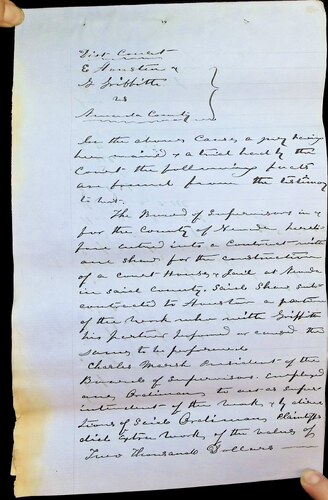 Dist Court
E Houston &
G Griffith
vs
Nevada County
In the above Case, a jury being
been waived & a trial had by the
Court the following facts
are found from the testimony
to wit.
The Board of Supervisors in &
for the County of Nevada here to
fore entered into a Contract with
one Shaw for the construction
of a Court House & Jail at Nevada
in said County. Said Shaw sub
contracted to Houston a portion
of the Work who with Griffith
his partner performed or caused the
same to be performed
Charles Marsh President of the
Board of Supervisors employed
one Bordman to act as Super
intendent of the Work, & by direc
tions of said Bordman, Plaintiffs
did extra Work of the value of
Two Thousand Dollars